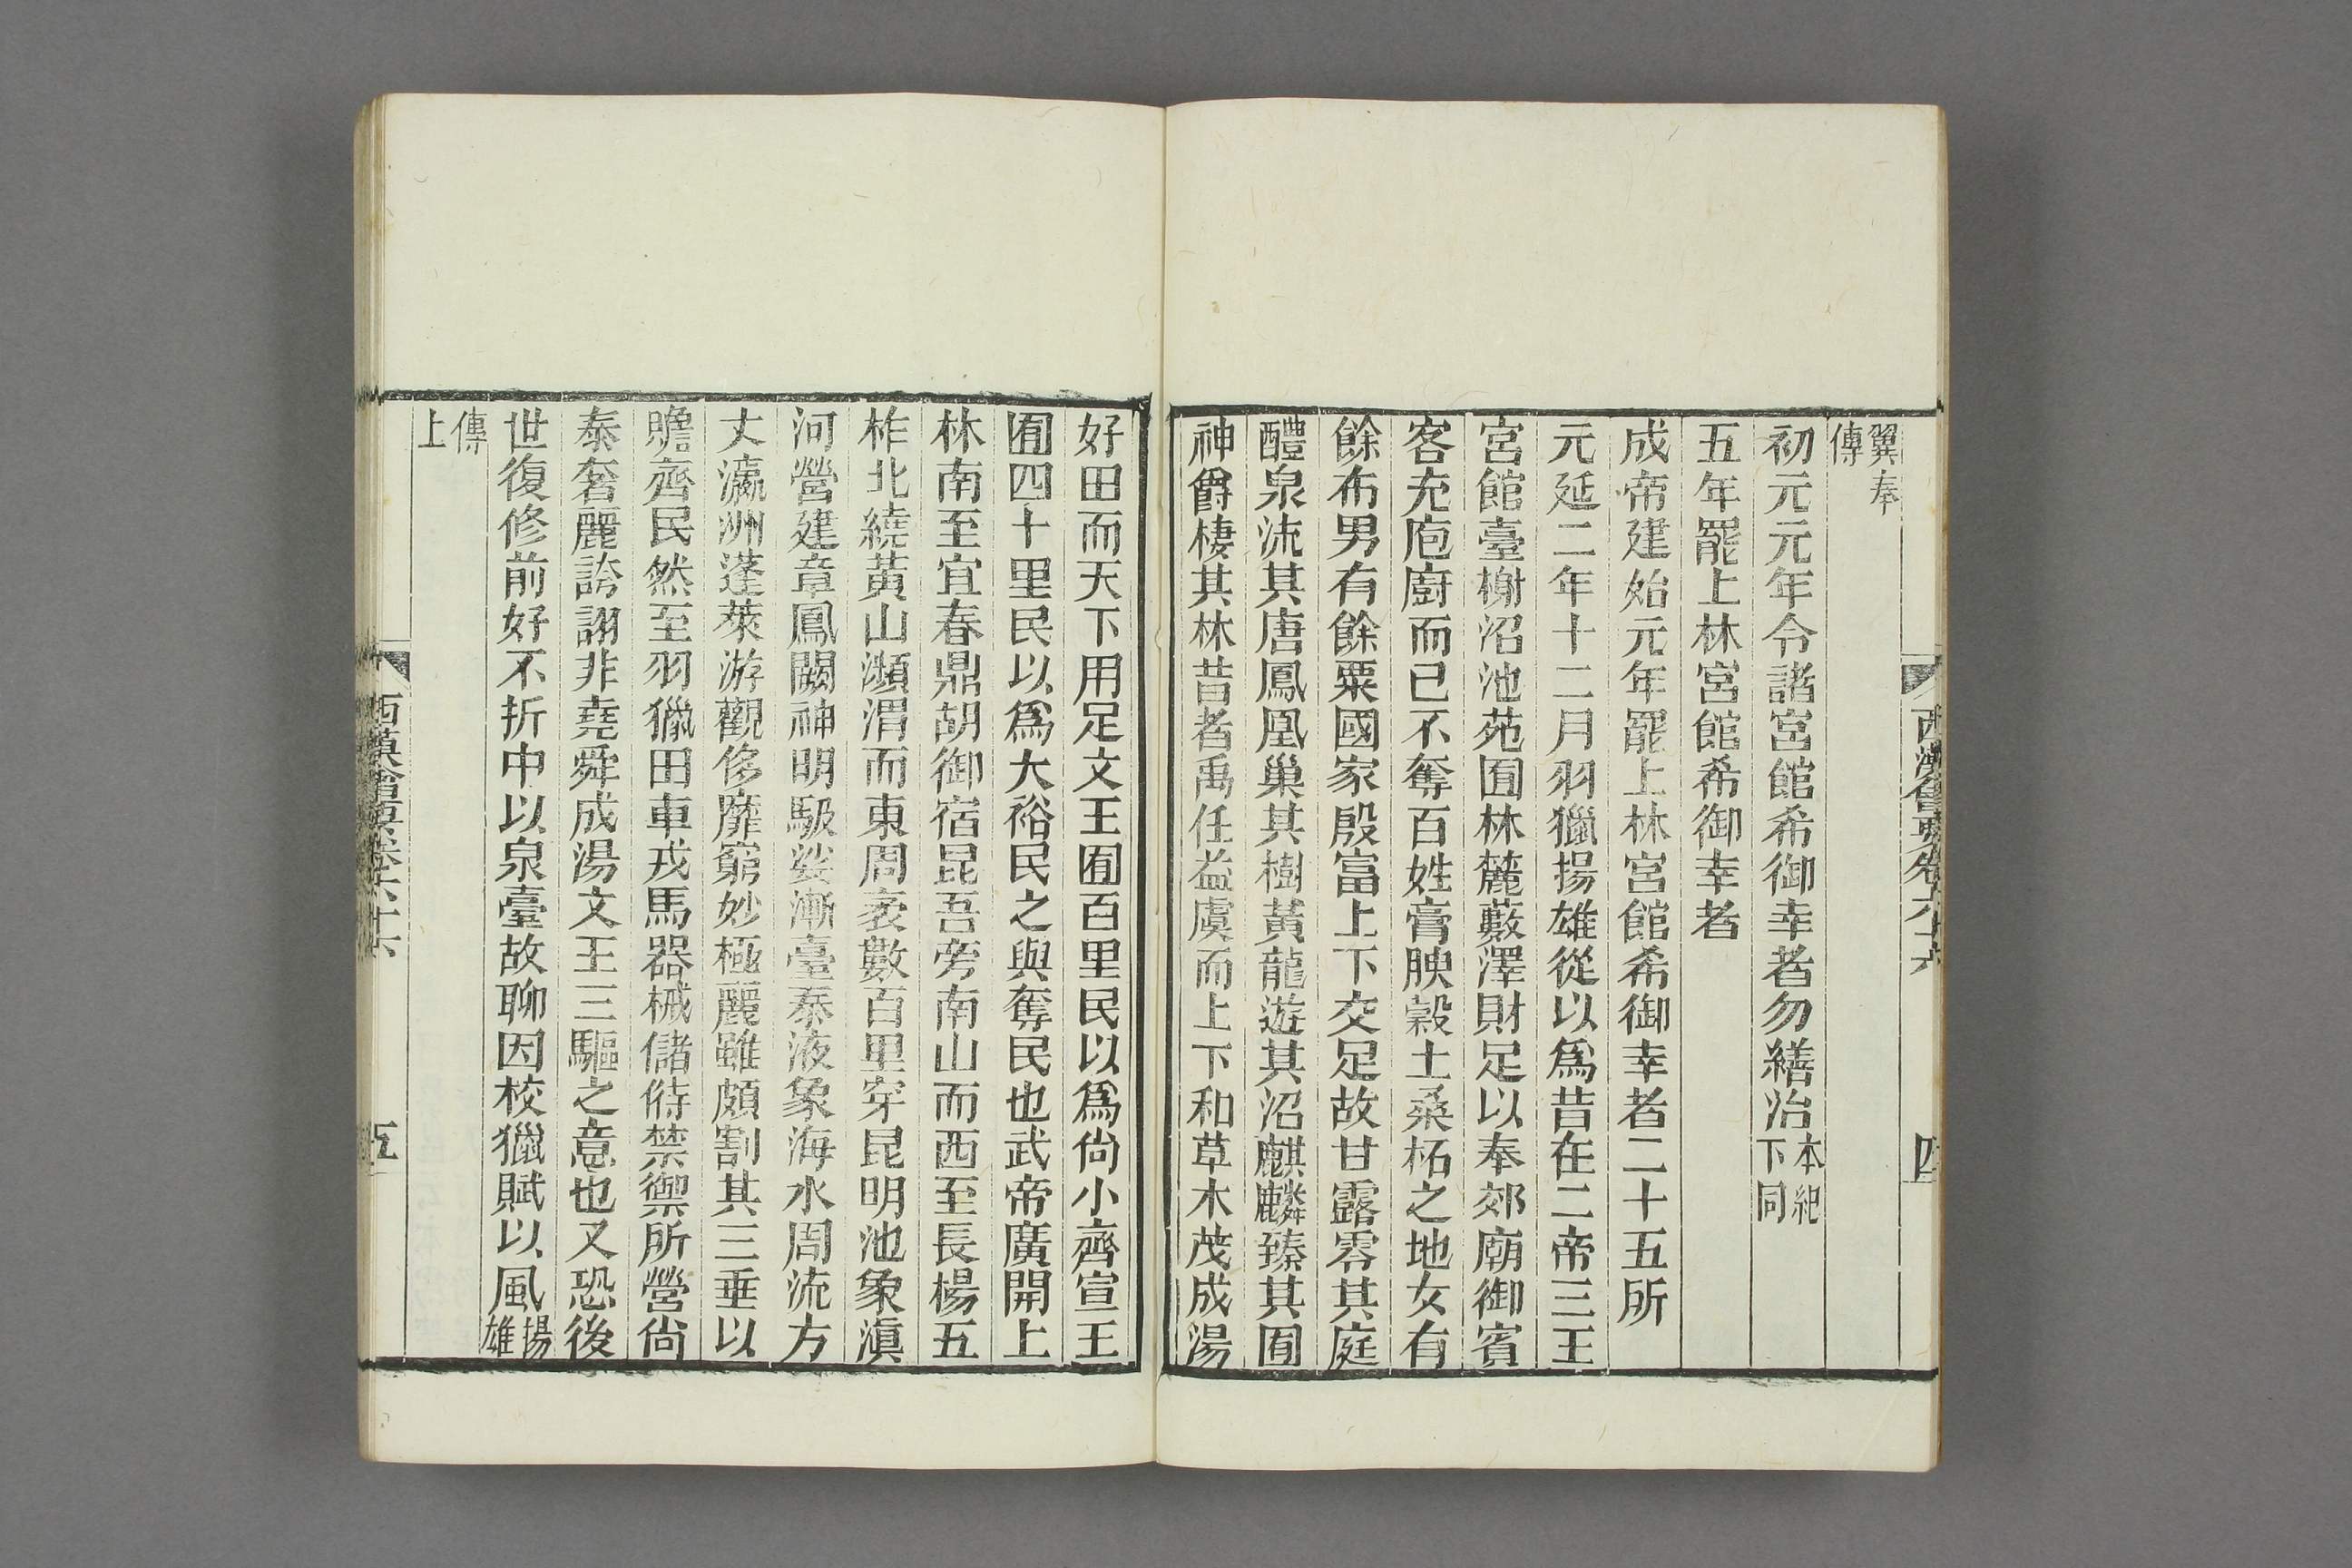 西漢會要卷六十六
四
翼奉傳
初元元年令諸宮館希御幸者勿繕治本紀下同
五年罷上林宮館希御幸者
成帝建始元年罷上林宮館希御幸者二十五所
元延二年十二月羽獵揚雄從以爲昔在二帝三王
宮館臺榭沼池苑囿林麓藪澤財足以奉郊廟御賓
客充庖廚而已不奪百姓膏腴穀土桑柘之地女有
餘布男有餘粟國家殷富上下交足故甘露零其庭
醴泉流其唐鳳凰巢其樹黃龍遊其沼麒麟臻其囿
神爵棲其林昔者禹任益虞而上下和草木茂成湯
好田而天下用足文王囿百里民以爲尙小齊宣王
囿四十里民以爲大裕民之與奪民也武帝廣開上
林南至宜春鼎胡御宿昆吾旁南山而西至長楊五
柞北繞黃山瀕渭而東周袤數百里穿昆明池象滇
河營建章鳳闕神明馺娑漸臺泰液象海水周流方
丈瀛洲蓬萊游觀侈靡窮妙極麗雖頗割其三垂以
贍齊民然至羽獵田車戎馬器械儲偫禁禦所營尙
泰奢麗誇詡非堯舜成湯文王三驅之意也又恐後
世復修前好不折中以泉臺故聊因校獵賦以風揚雄
傳上
西漢會要卷六十六
五